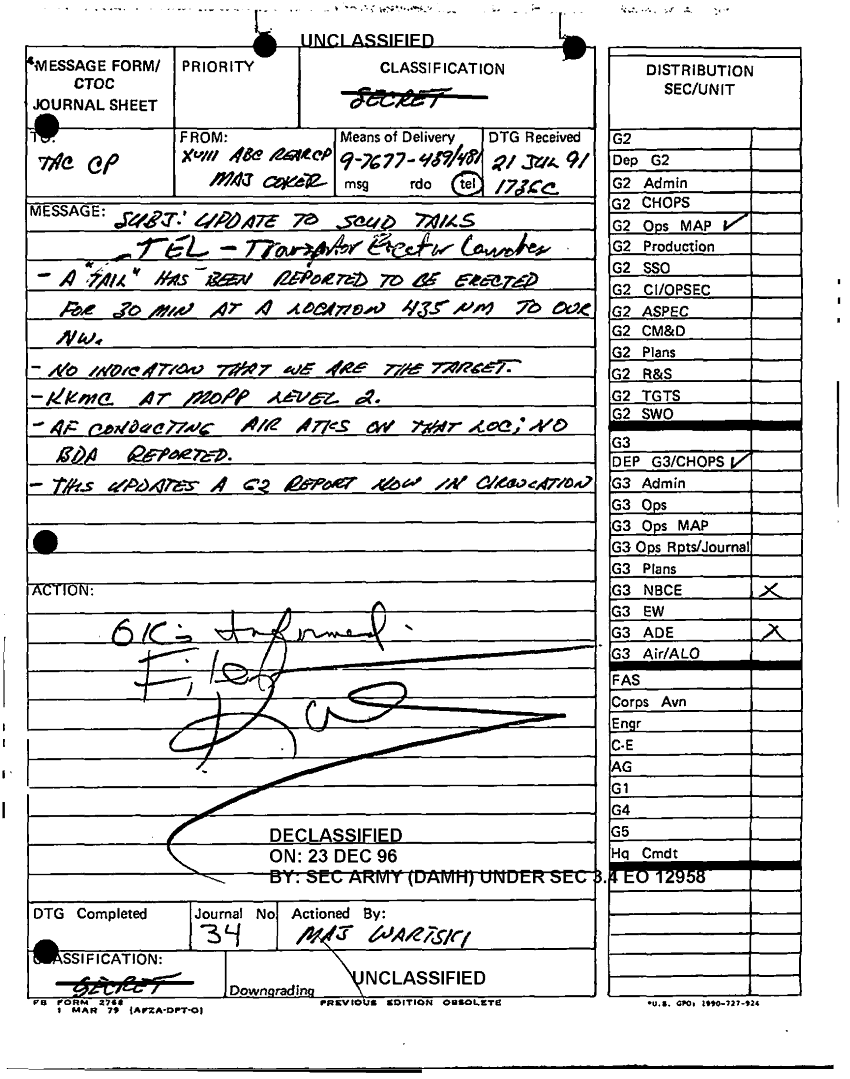 UNCLASSIFIED
MESSAGE FORM/
CTOC
JOURNAL SHEET
PRIORITY
CLASSIFICATION
SECRET
TO:
TAC CP
FROM:
XVIII ABC REARCP
MAJ COKER
Means of Delivery
9-7677-459/481
msg rdo tel
DTG Received
21 JUL 91
1735C
MESSAGE: SUBJ: UPDATE TO SCUD TAILS
TEL - Transporter Erector Launcher
- A "TAIL" HAS BEEN REPORTED TO BE ERECTED
FOR 30 MIN AT A LOCATION 435 NM TO OUR
NW.
- NO INDICATION THAT WE ARE THE TARGET.
- KKMC AT MOPP LEVEL 2.
- AF CONDUCTING AIR ATKS ON THAT LOC; NO
BDA REPORTED.
- THIS UPDATES A G2 REPORT NOW IN CIRCULATION
ACTION:
informed.
File
DECLASSIFIED
ON: 23 DEC 96
BY: SEC ARMY (DAMH) UNDER SEC 3.4 EO 12958
DTG Completed
Journal No.
34
Actioned By:
MAJ
CLASSIFICATION:
SECRET
Downgrading
UNCLASSIFIED
FB FORM 2768
1 MAR 79 (AFZA-DPT-O)
PREVIOUS EDITION OBSOLETE
DISTRIBUTION
SEC/UNIT
G2
Dep G2
G2 Admin
G2 CHOPS
G2 Ops MAP ✓
G2 Production
G2 SSO
G2 CI/OPSEC
G2 ASPEC
G2 CM&D
G2 Plans
G2 R&S
G2 TGTS
G2 SWO
G3
DEP G3/CHOPS ✓
G3 Admin
G3 Ops
G3 Ops MAP
G3 Ops Rpts/Journal
G3 Plans
G3 NBCE X
G3 EW
G3 ADE X
G3 Air/ALO
FAS
Corps Avn
Engr
C-E
AG
G1
G4
G5
Hq Cmdt
*U.S. GPO: 1990-727-924